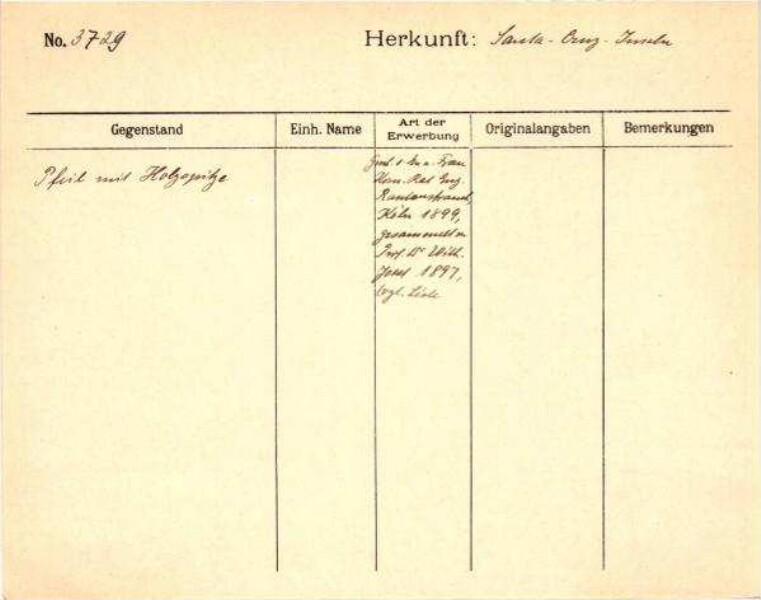 No. 3729
Herkunft: Santa-Cruz-Inseln
Gegenstand
Einh. Name
Art der
Erwerbung
Originalangaben
Bemerkungen
Pfeil mit Holzspitze
Frau
Kom. Rat Eug.
Rautenstrauch,
Köln 1899,
gesammelt v.
Prof. Dr Wilh.
Joest 1897,
vgl. Liste